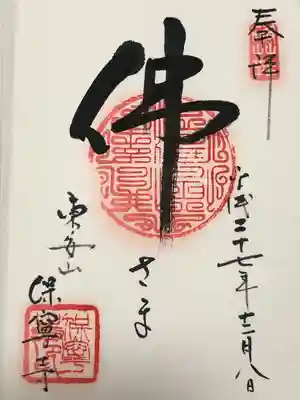 奉拝
平成二十七年十二月八日
佛
さま
東安山
保寧寺